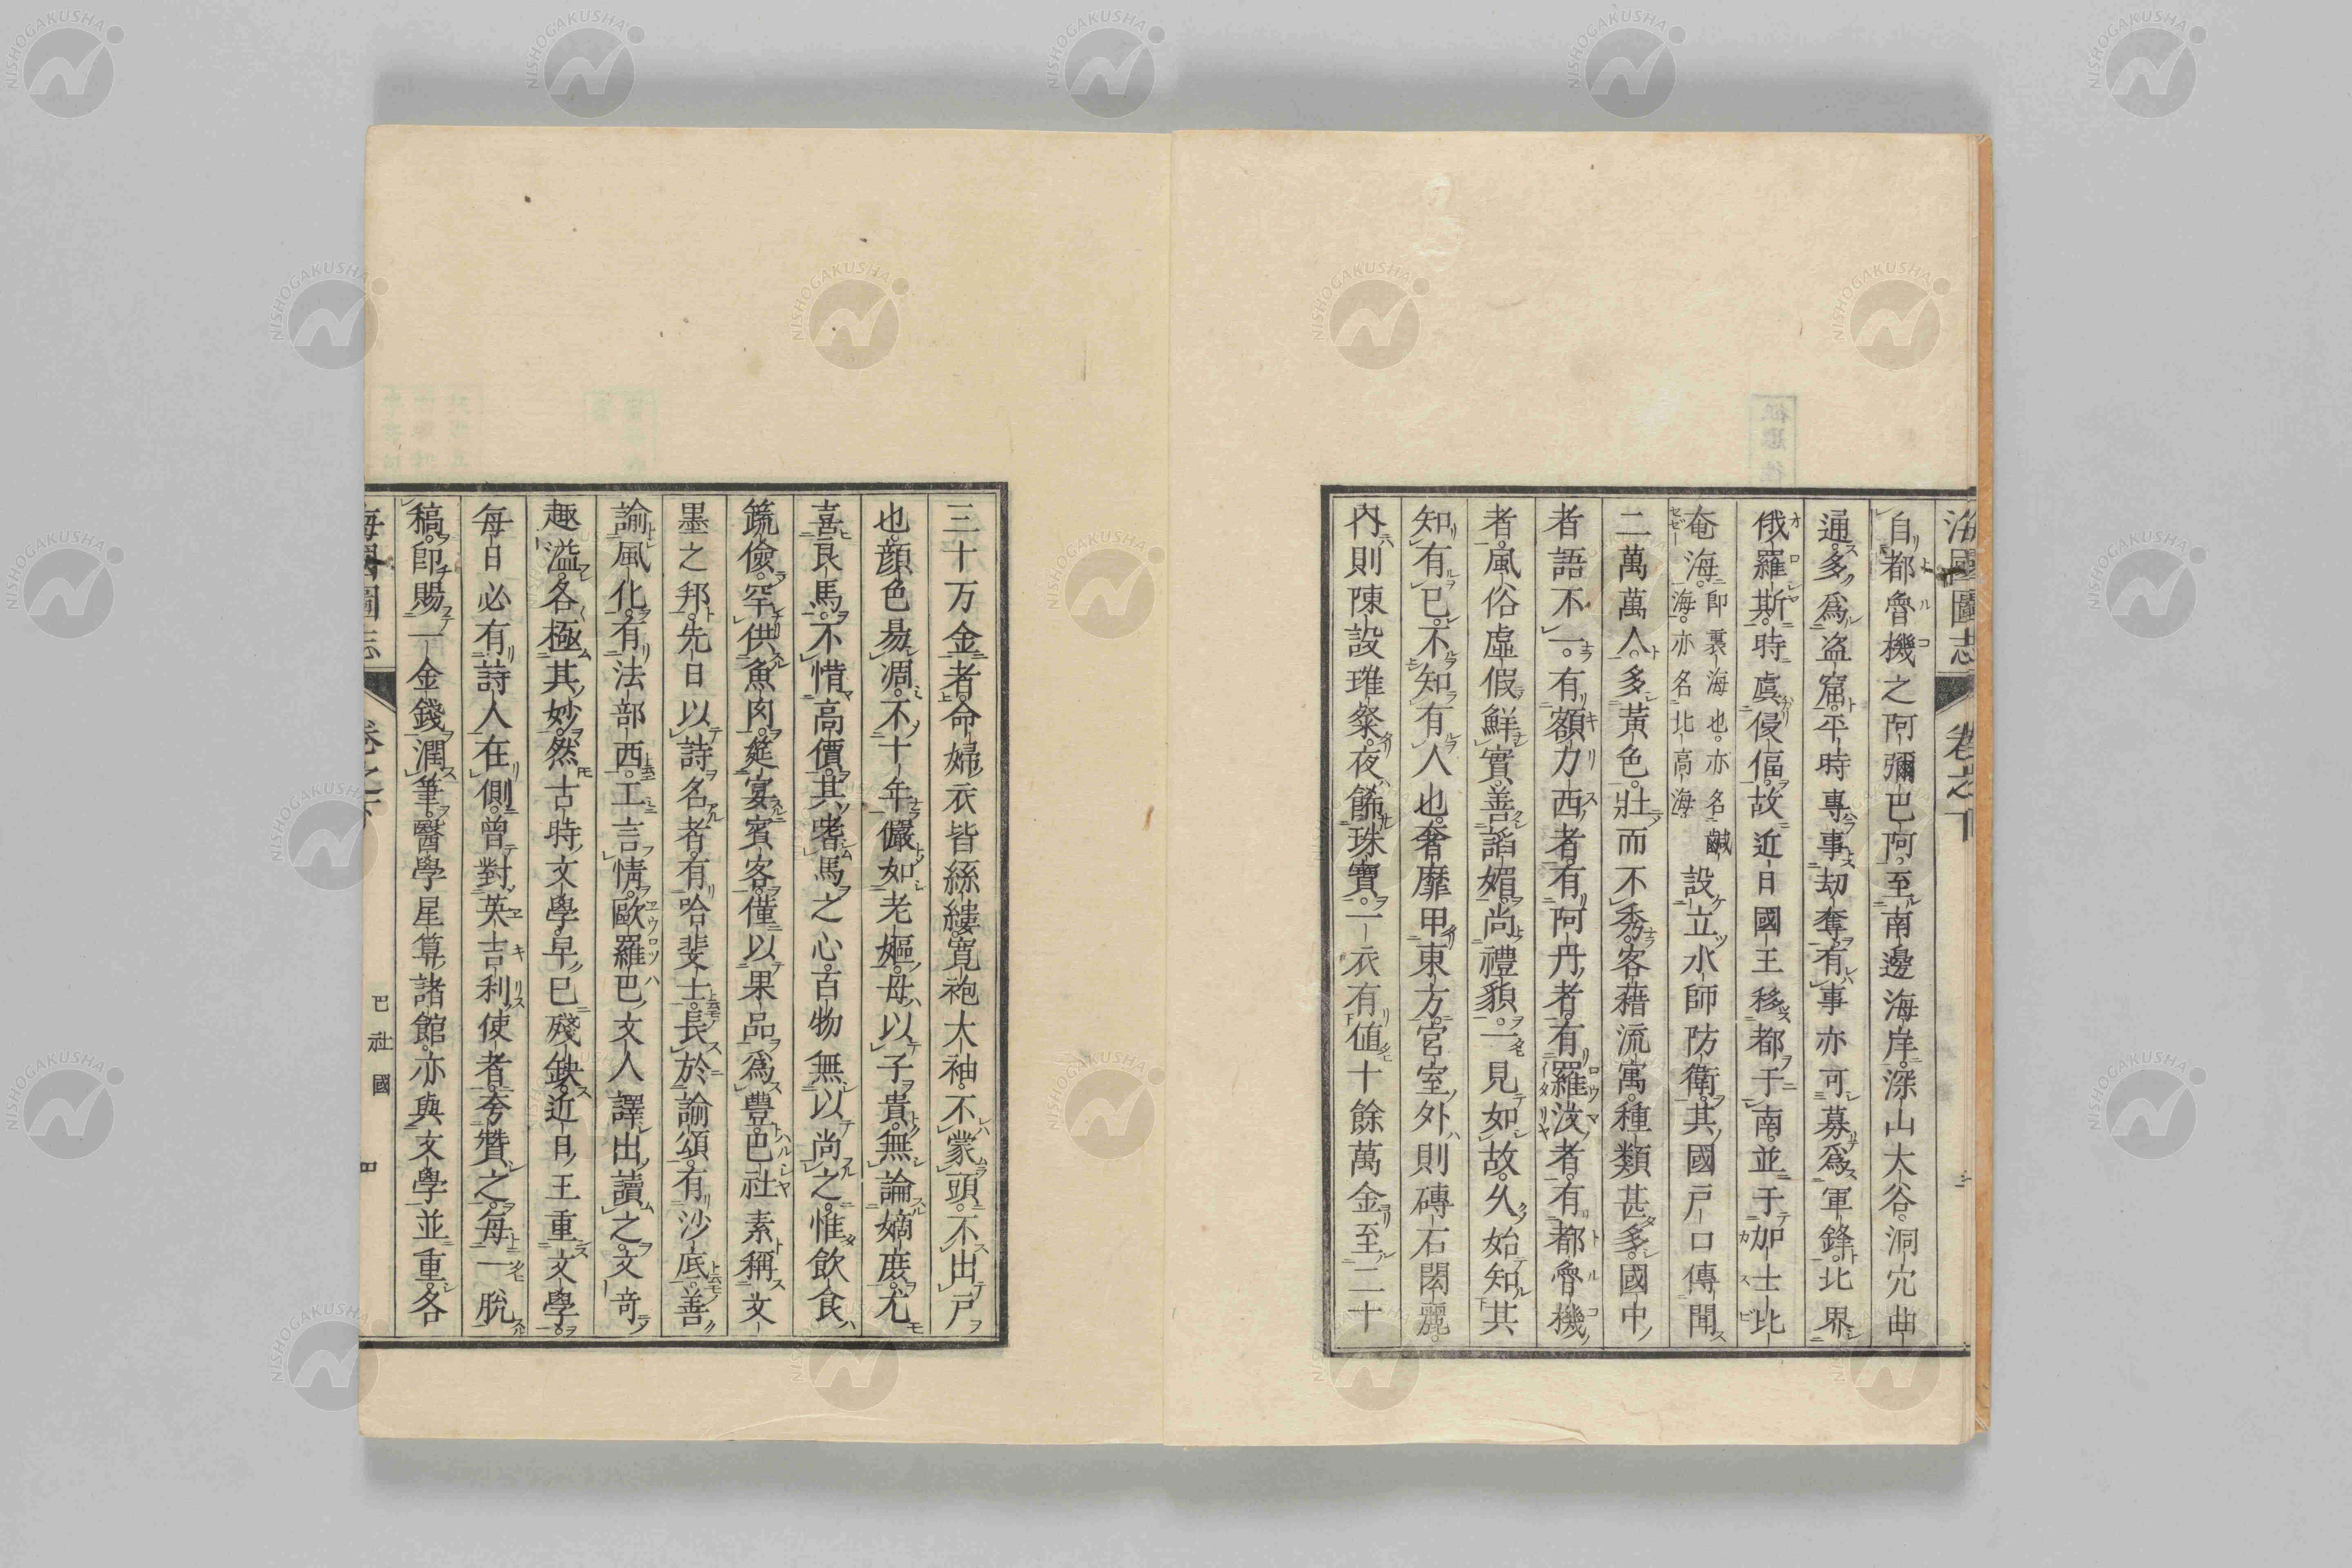 海國圖志 卷之下 三
自都魯機之阿彌巴阿。至南邊海岸。深山大谷。洞穴曲
通。多爲盜窟。平時專事劫奪。有事亦可募爲軍鋒。北界
俄羅斯。時虞侵偪。故近日國王移都于南。並于加士比
奄海。卽裏海也。亦名鹹海。亦名北高海。設立水師防衞。其國戸口傳聞
二萬萬人。多黃色。壯而不秀。客藉流寓。種類甚多。國中
者語不一。有額力西者。有阿丹者。有羅汶者。有都魯機
者。風俗虛假鮮實。善謟媚。尚禮貌。一見如故。久始知其
知有已。不知有人也。奢靡甲東方。宮室外則磚石閎麗。
內則陳設璀粲。夜飾珠寶。一衣有値十餘萬金至二十
三十万金者。命婦衣皆絲縷。寬袍大袖。不蒙頭。不出戸
也。顏色易凋。不十年儼如老嫗。母以子貴。無論嫡庶。尤
喜良馬。不惜高價。其嗜馬之心。百物無以尚之。惟飲食
䟽儉。罕供魚肉。筵宴賓客。僅以果品爲豐。巴社素稱文
墨之邦。先日以詩名者。有哈斐士。長於諭頌。有沙底。善
諭風化。有法部西。工言情。歐羅巴文人譯出讀之。文奇
趣溢。各極其妙。然古時文學。早已殘缺。近日王重文學。
每日必有詩人在側。曾對英吉利使者。夸贊之。每一脫
稿。卽賜一金錢潤筆。醫學星算諸館。亦與文學並重。各
海國圖志 卷之下 巴社國 四
NISHOGAKUSHA